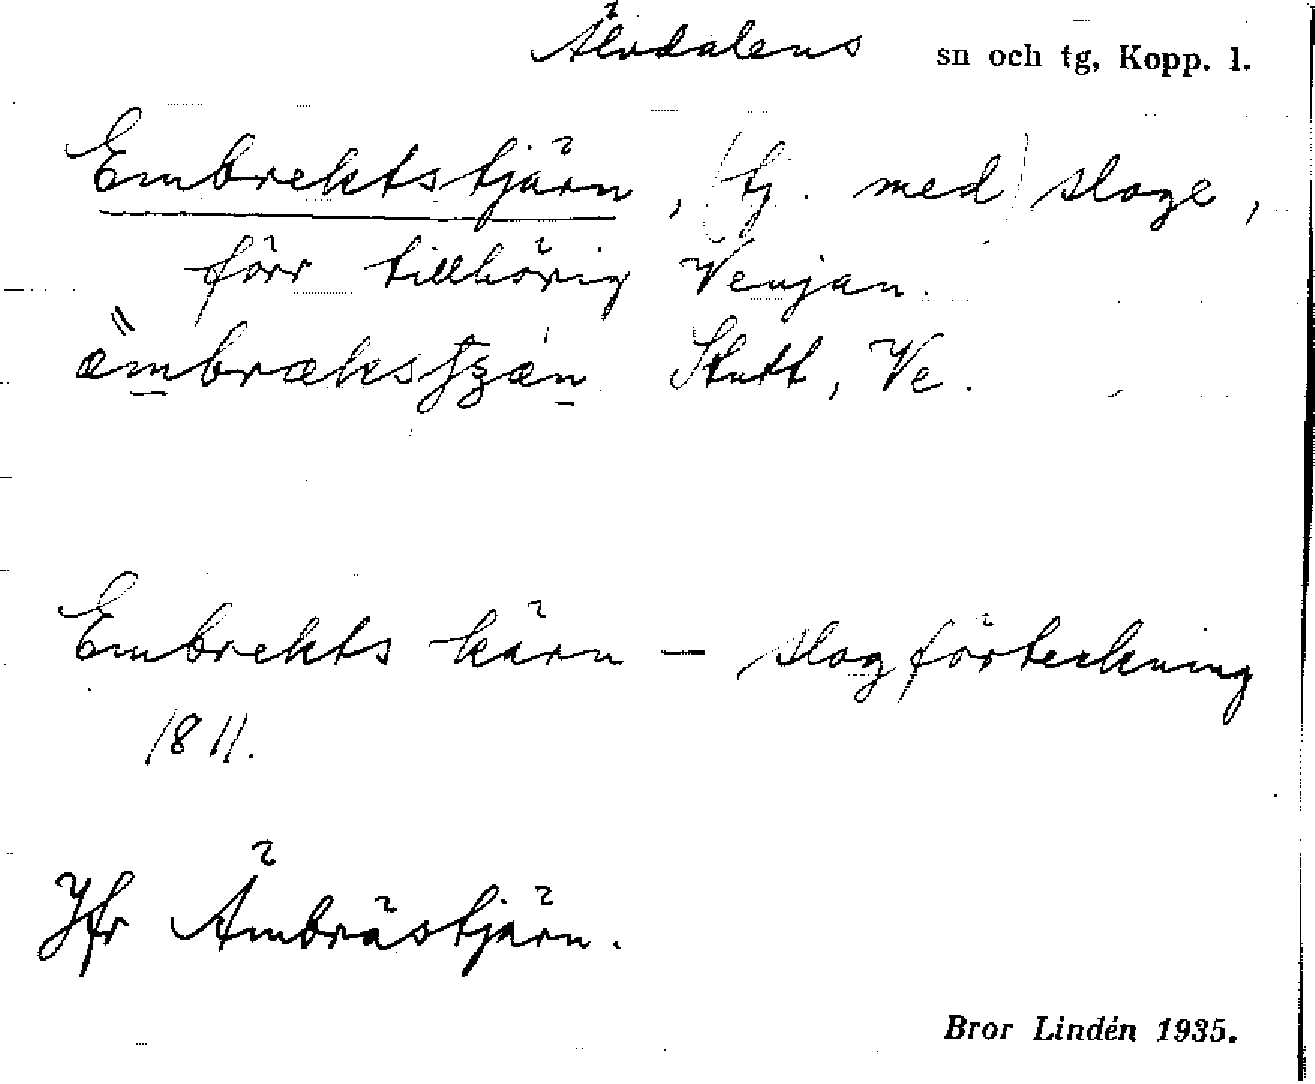 Älvdalens sn och tg, Kopp. l.
Embrektstjärn, (tj. med) sloge,
förr tillhörig Venjan.
Stutt, Ve.
Embrekts kärn – slogförteckning
1811.
Jfr Ämbrästjärn.
Bror Lindén 1935.